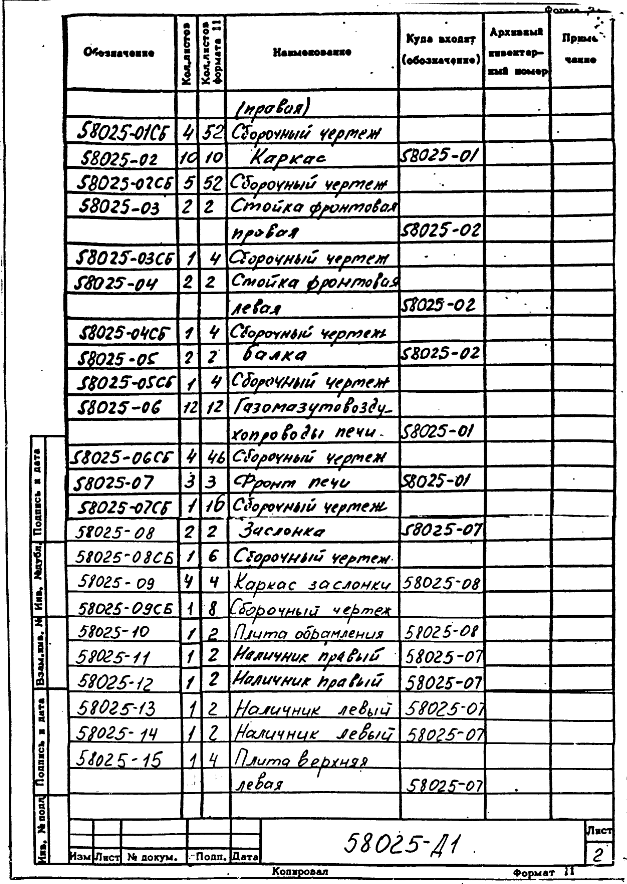 Форма 2а
Обозначение Кол.листов Кол.листов формата 11 Наименование Куда входит (обозначение) Архивный инвентарный номер Примечание
(правая)
58025-01СБ 4 52 Сборочный чертеж
58025-02 10 10 Каркас 58025-01
58025-02СБ 5 52 Сборочный чертеж
58025-03 2 2 Стойка фронтовая
правая 58025-02
58025-03СБ 1 4 Сборочный чертеж
58025-04 2 2 Стойка фронтовая
левая 58025-02
58025-04СБ 1 4 Сборочный чертеж
58025-05 2 2 Балка 58025-02
58025-05СБ 1 4 Сборочный чертеж
58025-06 12 12 Газомазутовозду-
хопроводы печи. 58025-01
58025-06СБ 4 46 Сборочный чертеж
58025-07 3 3 Фронт печи 58025-01
58025-07СБ 1 16 Сборочный чертеж
58025-08 2 2 Заслонка 58025-07
58025-08СБ 1 6 Сборочный чертеж
58025-09 4 4 Каркас заслонки 58025-08
58025-09СБ 1 8 Сборочный чертеж
58025-10 1 2 Плита обрамления 58025-08
58025-11 1 2 Наличник правый 58025-07
58025-12 1 2 Наличник правый 58025-07
58025-13 1 2 Наличник левый 58025-07
58025-14 1 2 Наличник левый 58025-07
58025-15 1 4 Плита верхняя
левая 58025-07
Подпись и дата
Инв. № дубл.
Взам.инв. №
Подпись и дата
Инв. № подл.
58025-Д1
Лист
2
Изм Лист № докум. Подп. Дата
Копировал Формат 11